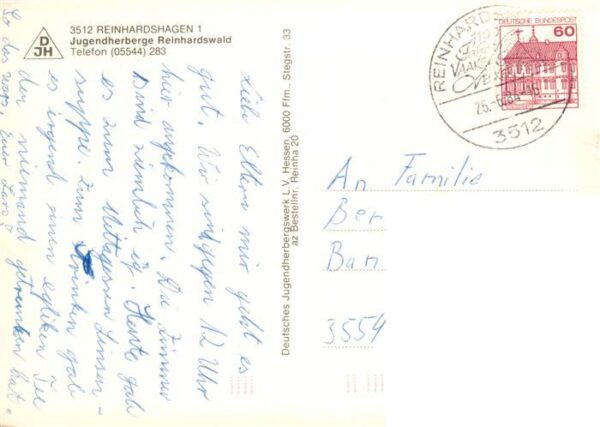 3512 REINHARDSHAGEN 1
Jugendherberge Reinhardswald
Telefon (05544) 283
DJH
Liebe Eltern mir geht es
gut. Wir sind gegen 12 Uhr
hier angekommen. Die Zimmer
sind ziemlich eg. Heute gab
es zum Mittagessen Linsen-
suppe. Zum Trinken gab
es irgend einen egliken Tee
den niemand getrunken hat.
So das wars, Euer Lars
Deutsches Jugendherbergswerk L.V. Hessen, 6000 Ffm., Stegstr. 33
az Bestellnr. Reinha 20
REINHARDS
25.-6.84
3512
DEUTSCHE BUNDESPOST
60
An Familie
Ber
Ban
3554